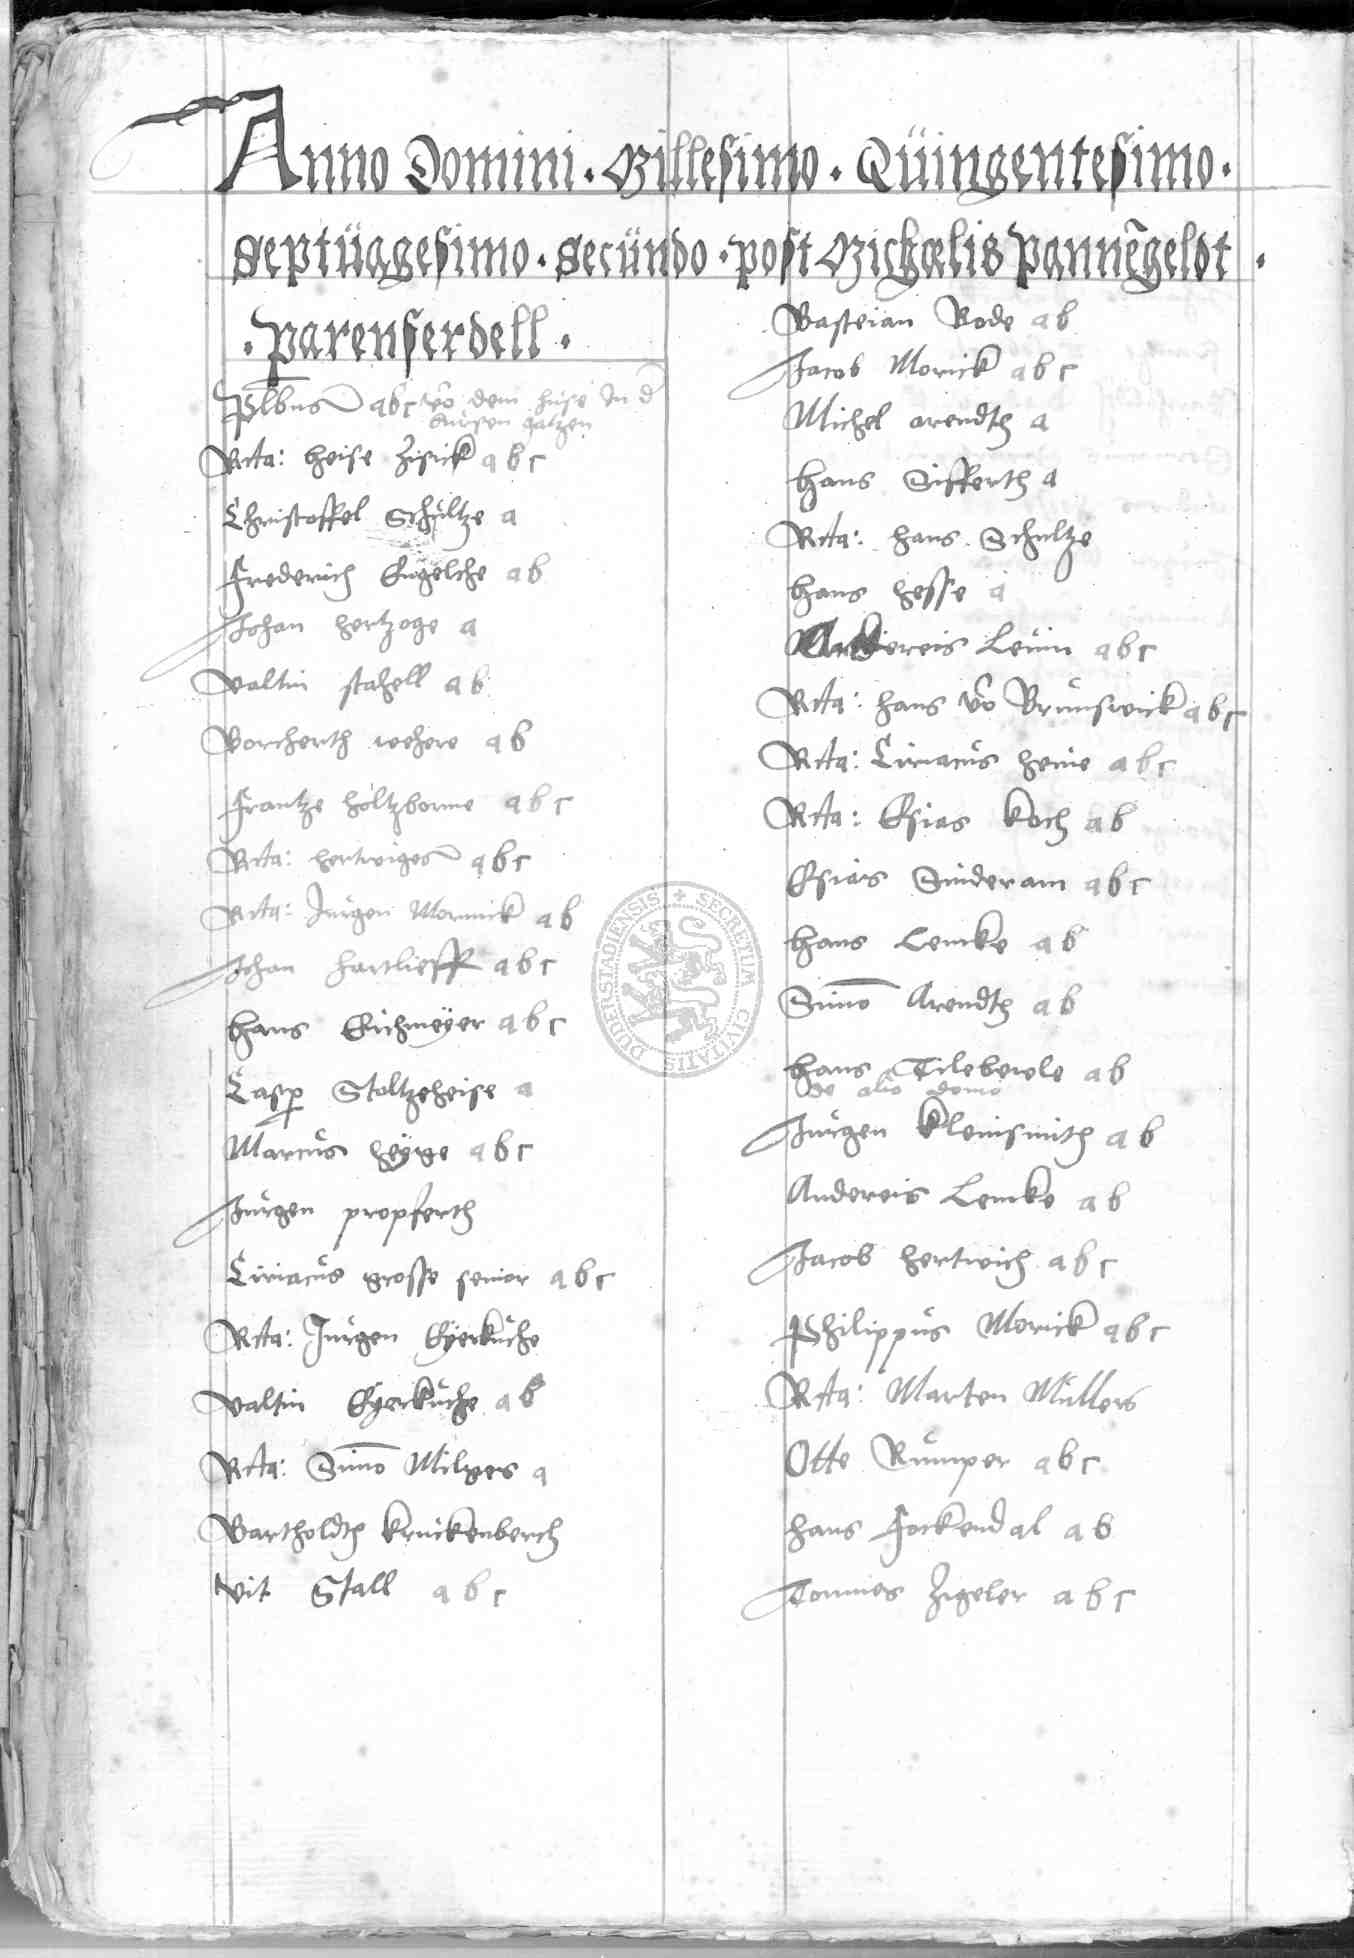 Anno Domini · Millesimo · Quingentesimo ·
Septuagesimo · Secundo · post Michaelis pannẽgeldt ·
· parenferdell ·
Plbnus abc vô dem huse In d̄
kursen gatzen
Rcta: heise Zisick abc
Christoffel Schultze a
Frederich Engelche ab
Johan hertzoge a
Valtin stahell ab
Borcherth wehere ab
Frantze holtzborne abc
Rcta: hertwiges abc
Rcta: Jurgen Mornick ab
Johan hartlieff abc
hans Eichmeÿer abc
Casp Stoltzeheise a
Marcus heÿge abc
Jurgen propferth
Ciriacus grosse senior abc
Rcta: Jurgen Eÿerkuche
Valtin Eÿerkuche ab
Rcta: Simō Milges a
Bartholdth kruckenberch
Vit Stall abc
Basteian Bode ab
Jacob Morick abc
Michel arendth a
hans Sifferth a
Rcta: hans Schultze
hans hesse a
Andereis Leuin abc
Rcta: hans vô Brunswick abc
Rcta: Ciriacus heine abc
Rcta: Esias koch ab
Esias Sinderam abc
hans Lemke ab
Simō Arendth ab
hans Tilebeile ab
de alio domo
Jurgen kleinsmith ab
Andereis Lemke ab
Jacob hertwich abc
Philippus Morick abc
Rcta: Marten Mullers
Otte Rumper abc
hans Fockendal ab
Tonnies Zigeler abc
SECRETUM CIVITATIS DUDERSTADIENSIS